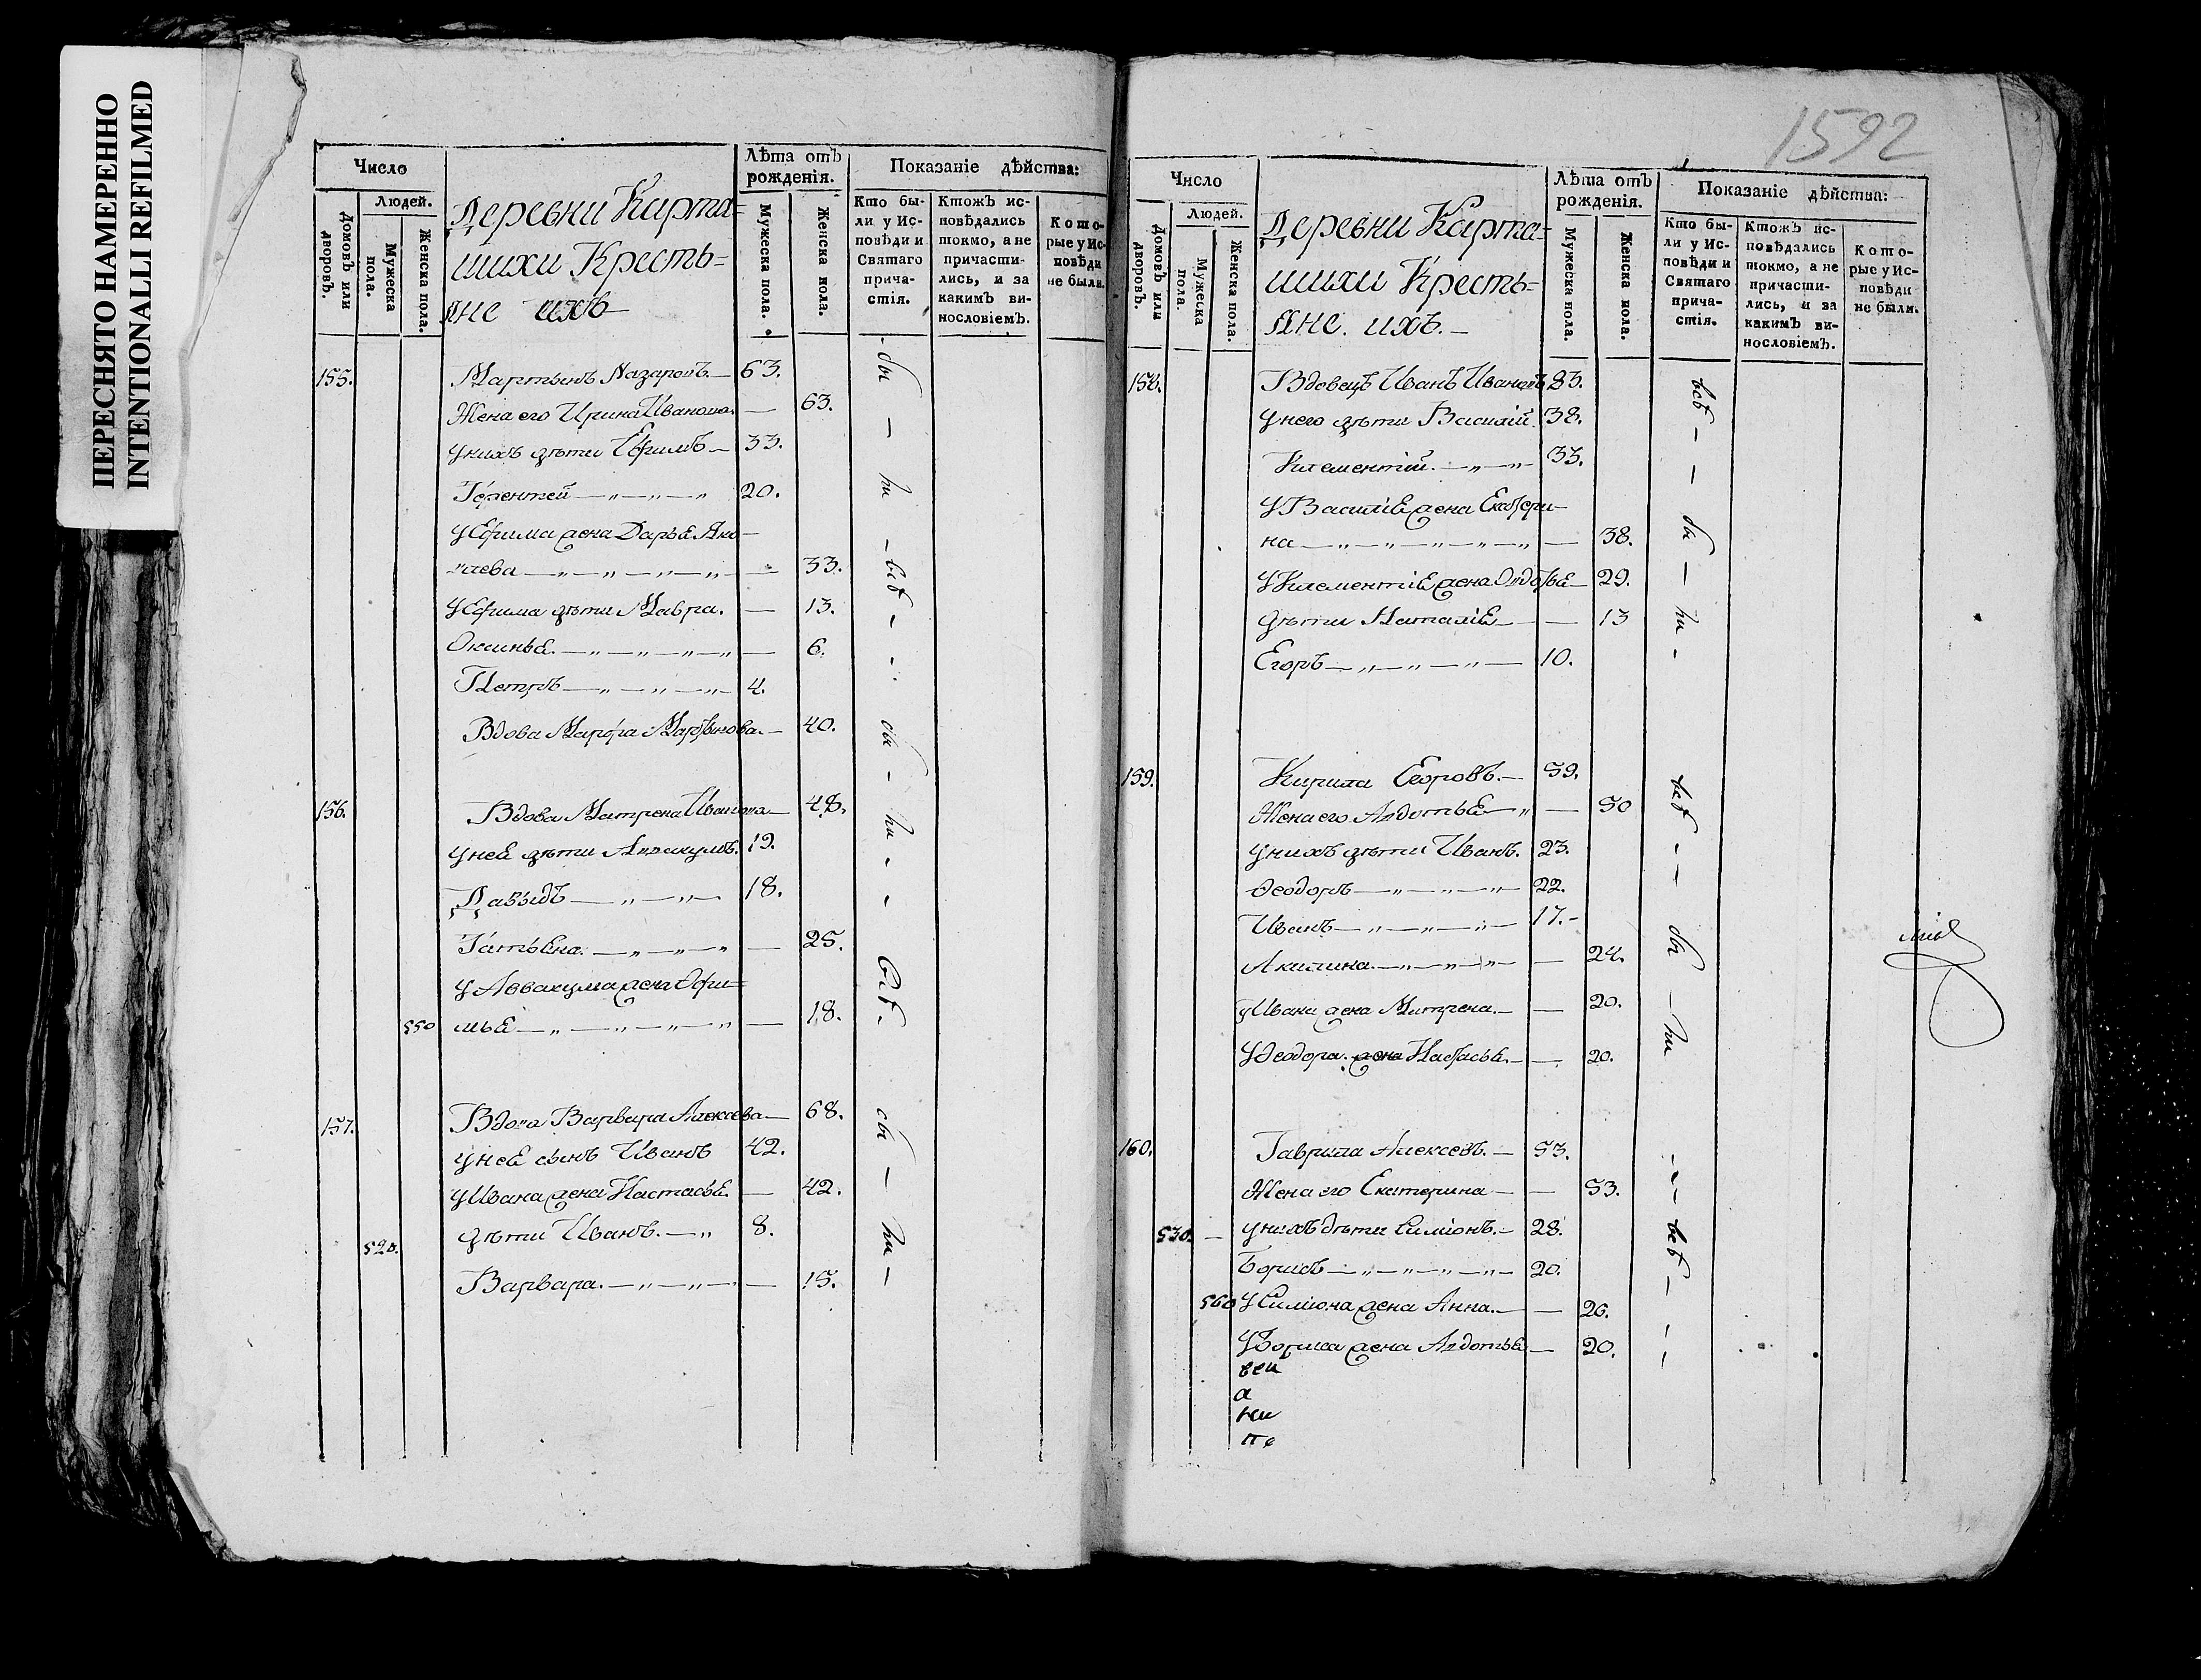 ПЕРЕСНЯТО НАМЕРЕННО
INTENTIONALLI REFILMED
1592
Число
Людей.
Домовъ или дворовъ.
Мужеска пола.
Женска пола.
Деревни Карта=
шихи Кресть=
яне ихъ
Лѣта отъ рожденія.
Мужеска пола.
Женска пола.
Показаніе дѣйства:
Кто бы-
ли у Ис-
повѣди и
Святаго
прича-
стія.
Ктожъ ис-
повѣдались
токмо, а не
причасти-
лись, и за
какимъ ви-
нословіемъ.
Кото-
рые у Ис-
повѣди
не были.
155. Мартынъ Назаровъ.— 63.
Жена его Ирина Иванова.— 63.
У нихъ дѣти Ефимъ— 33.
Терентей —„—„—„ 20.
У Ефима жена Дарья Яко—
влева —„—„—„— 33.
У Ефима дѣти Мавра.— 13.
Оксинья.—„—„—„— 6.
Петръ—„—„—„— 4.
Вдова Марфа Мартынова.— 40.
156. Вдова Матрена Иванова— 48.
У нея дѣти Аввакумъ. 19.
Давыдъ—„—„— 18.
Татьяна.—„—„—„— 25.
У Аввакума жена Офи=
550 мья—„—„—„—„— 18.
157. Вдова Варвара Алексева— 68.
У нея сынъ Иванъ 42.
У Ивана жена Настасья.— 42.
520. дѣти Иванъ.—„ 8.
Варвара.—„—„— 15.
бы — ли — всѣ —
бы — ли — всѣ.
бы — ли —
Число
Людей.
Домовъ или дворовъ.
Мужеска пола.
Женска пола.
Деревни Карта=
шихи Кресть=
яне. ихъ.—
Лѣта отъ рожденія.
Мужеска пола.
Женска пола.
Показаніе дѣйства:
Кто бы-
ли у Ис-
повѣди и
Святаго
прича-
стія.
Ктожъ ис-
повѣдались
токмо, а не
причасти-
лись, и за
какимъ ви-
нословіемъ.
Кото-
рые у Ис-
повѣди
не были.
158. Вдовецъ Иванъ Ивановъ 83.
У него дѣти Василій. 38.
Климентій.—„—„— 33.
У Василія жена Екатери—
на—„—„—„—„—„— 38.
У Климентія жена Авдотья— 29.
дѣти Наталія— 13
Егоръ—„—„—„— 10.
159. Кирила Егоровъ.— 59.
Жена его Авдотья—„— 50
У нихъ дѣти Иванъ. 23.
Ѳеодоръ—„—„—„— 22.
Иванъ—„—„—„— 17.—
Акилина.—„—„—„— 24.
У Ивана жена Матрена.— 20.
У Ѳеодора жена Настасья.— 20.
160. Гаврила Алексевъ.— 53.
Жена его Екатерина— 53.
530.— У нихъ дѣти Симіонъ.— 28.
Борисъ—„—„—„—„— 20.
560 У Симіона жена Анна.— 26.
У Бориса жена Авдотья— 20.
всѣ — — бы — ли —
всѣ — — бы — ли
— — всѣ — —